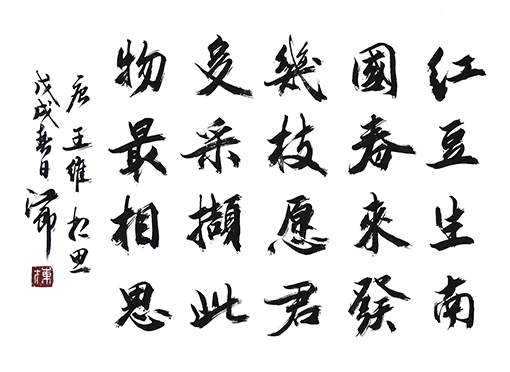 红豆生南
國春來發
幾枝愿君
多采擷此
物最相思
唐王维相思
戊戌春日